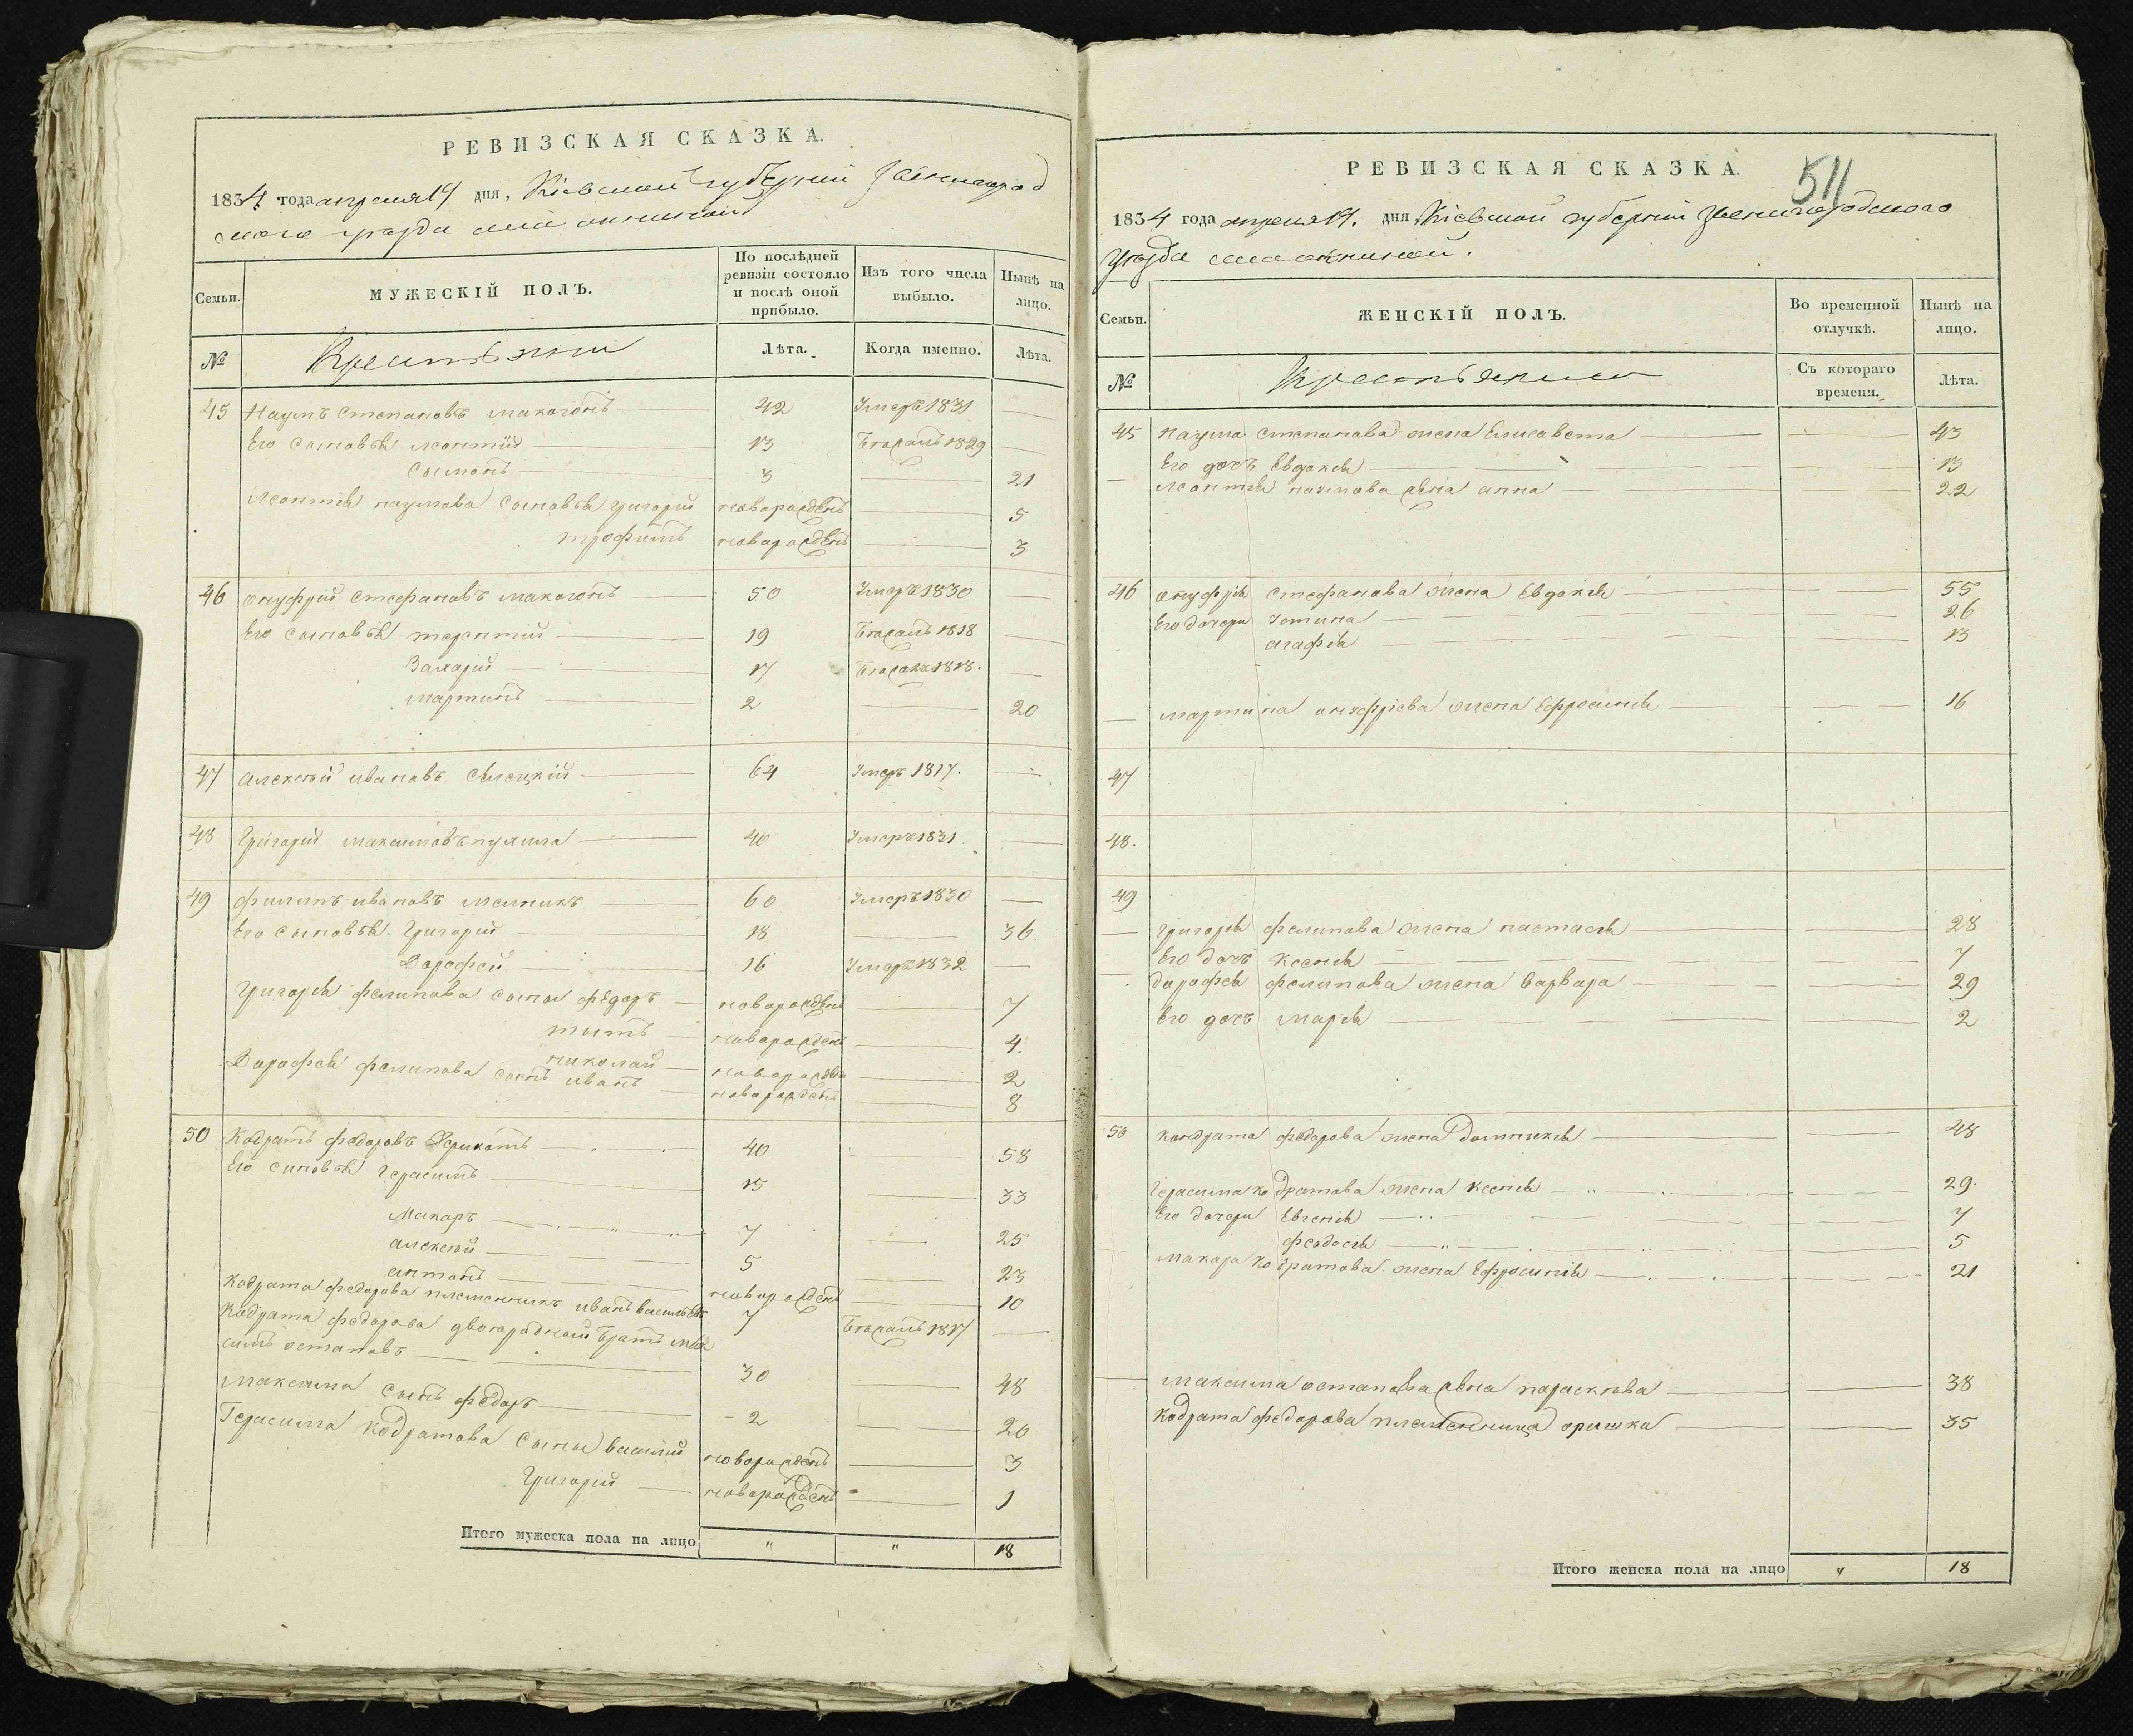 РЕВИЗСКАЯ СКАЗКА.
1834 года апреля 19 дня. Кіевской губерніи Звенигород
ского уезда села
Семьи.
МУЖЕСКІЙ ПОЛЪ.
По послѣдней ревизіи состояло и послѣ оной прибыло.
Изъ того числа выбыло.
Нынѣ на лицо.
№ Крестьяни Лѣта. Когда именно. Лѣта.
45 Наумъ Степановъ Макогонъ 42 Умеръ 1831
Его сыновья Леонтій 13 Бежалъ 1829
Сымонъ 3 21
Леонтія Наумова сыновья Григорій новорожденъ 5
Трофимъ новорожденъ 3
46 Онуфрій Стефановъ Макогонъ 50 Умеръ 1830
Его сыновья Терентій 19 Бежалъ 1818
Захарій 17 Бежалъ 1818.
Мартинъ 2 20
47 Алексѣй Ивановъ 64 Умеръ 1817.
48 Григорій Максимовъ 40 Умеръ 1831.
49 Филипъ Ивановъ Мелникъ 60 Умеръ 1830
Его сыновья Григорій 18 36.
Дорофей 16 Умеръ 1832
Григорія Филипова сыны Федоръ новорожденъ 7
Титъ новорожденъ 4.
Николай новорожденъ 2
Дорофея Филипова сынъ Иванъ новорожденъ 8
50 Кодратъ Федоровъ 40 58
Его синовья Герасимъ 15 33
Макаръ 7 25
Алексѣй 5 23
Антонъ новорожденъ 10
Кодрата Федорова племенникъ Иванъ Васильевъ 7 Бежалъ 1817
Кодрата Федорова двоюродный братъ Мак
симъ Остаповъ 30 48
Максима сынъ Федоръ 2 20
Герасима Кодратова сыны Василій новорожденъ 3
Григорій новорожденъ 1
Итого мужеска пола на лицо " " 18
РЕВИЗСКАЯ СКАЗКА.
511
1834 года апреля 19. дня Кіевской губерніи Звенигородского
уезда села
Семьи.
ЖЕНСКІЙ ПОЛЪ.
Во временной отлучкѣ.
Нынѣ на лицо.
№ Крестьянки Съ котораго времени. Лѣта.
45 Наума Степанова жена Елисавета 43
Его дочъ Евдокія 13
Леонтія Наумова жена Анна 22
46 Онуфрія Стефанова жена Евдокія 55
Его дочери Устина 26
Агафія 13
Мартина Онуфріева жена Ефросинія 16
47
48.
49
Григорія Филипова жена Настасія 28
Его дочъ Ксенія 7
Дорофея Филипова жена Варвара 29
Его дочъ Марія 2
50 Кондрата Федорова жена Домникія 48
Герасима Кодратова жена Ксенія 29.
Его дочери Евгенія 7
Феодосія 5
Макара Кодратова жена Ефросинія 21
Максима Остапова жена Параскѣва 38
Кодрата Федорова племенница Оришка 35
Итого женска пола на лицо " 18